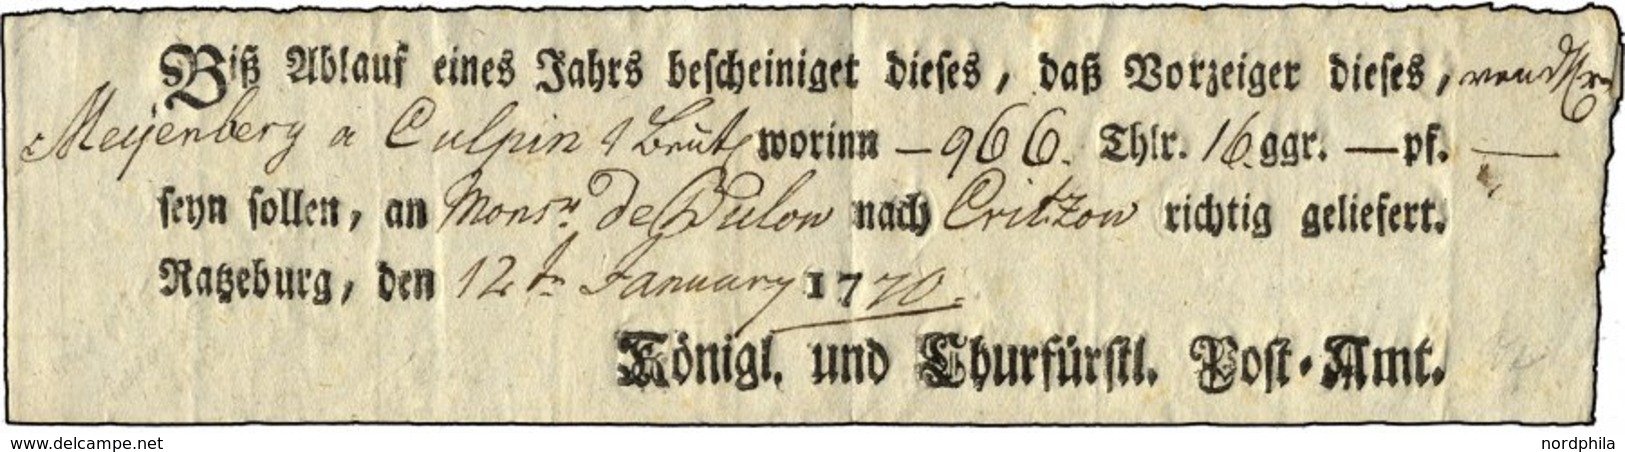 Biß Ablauf eines Jahrs bescheiniget dieses, daß Vorzeiger dieses, von d Hrn
Meyenberg a Culpin 1 Beutel worinn – 966. Thlr. 16 ggr. — pf. —
seyn sollen, an Monsr. de Bulow nach Critzow richtig geliefert.
Ratzeburg, den 12t. January 1770.
Königl. und Churfürstl. Post-Amt.
www.delcampe.net
nordphila